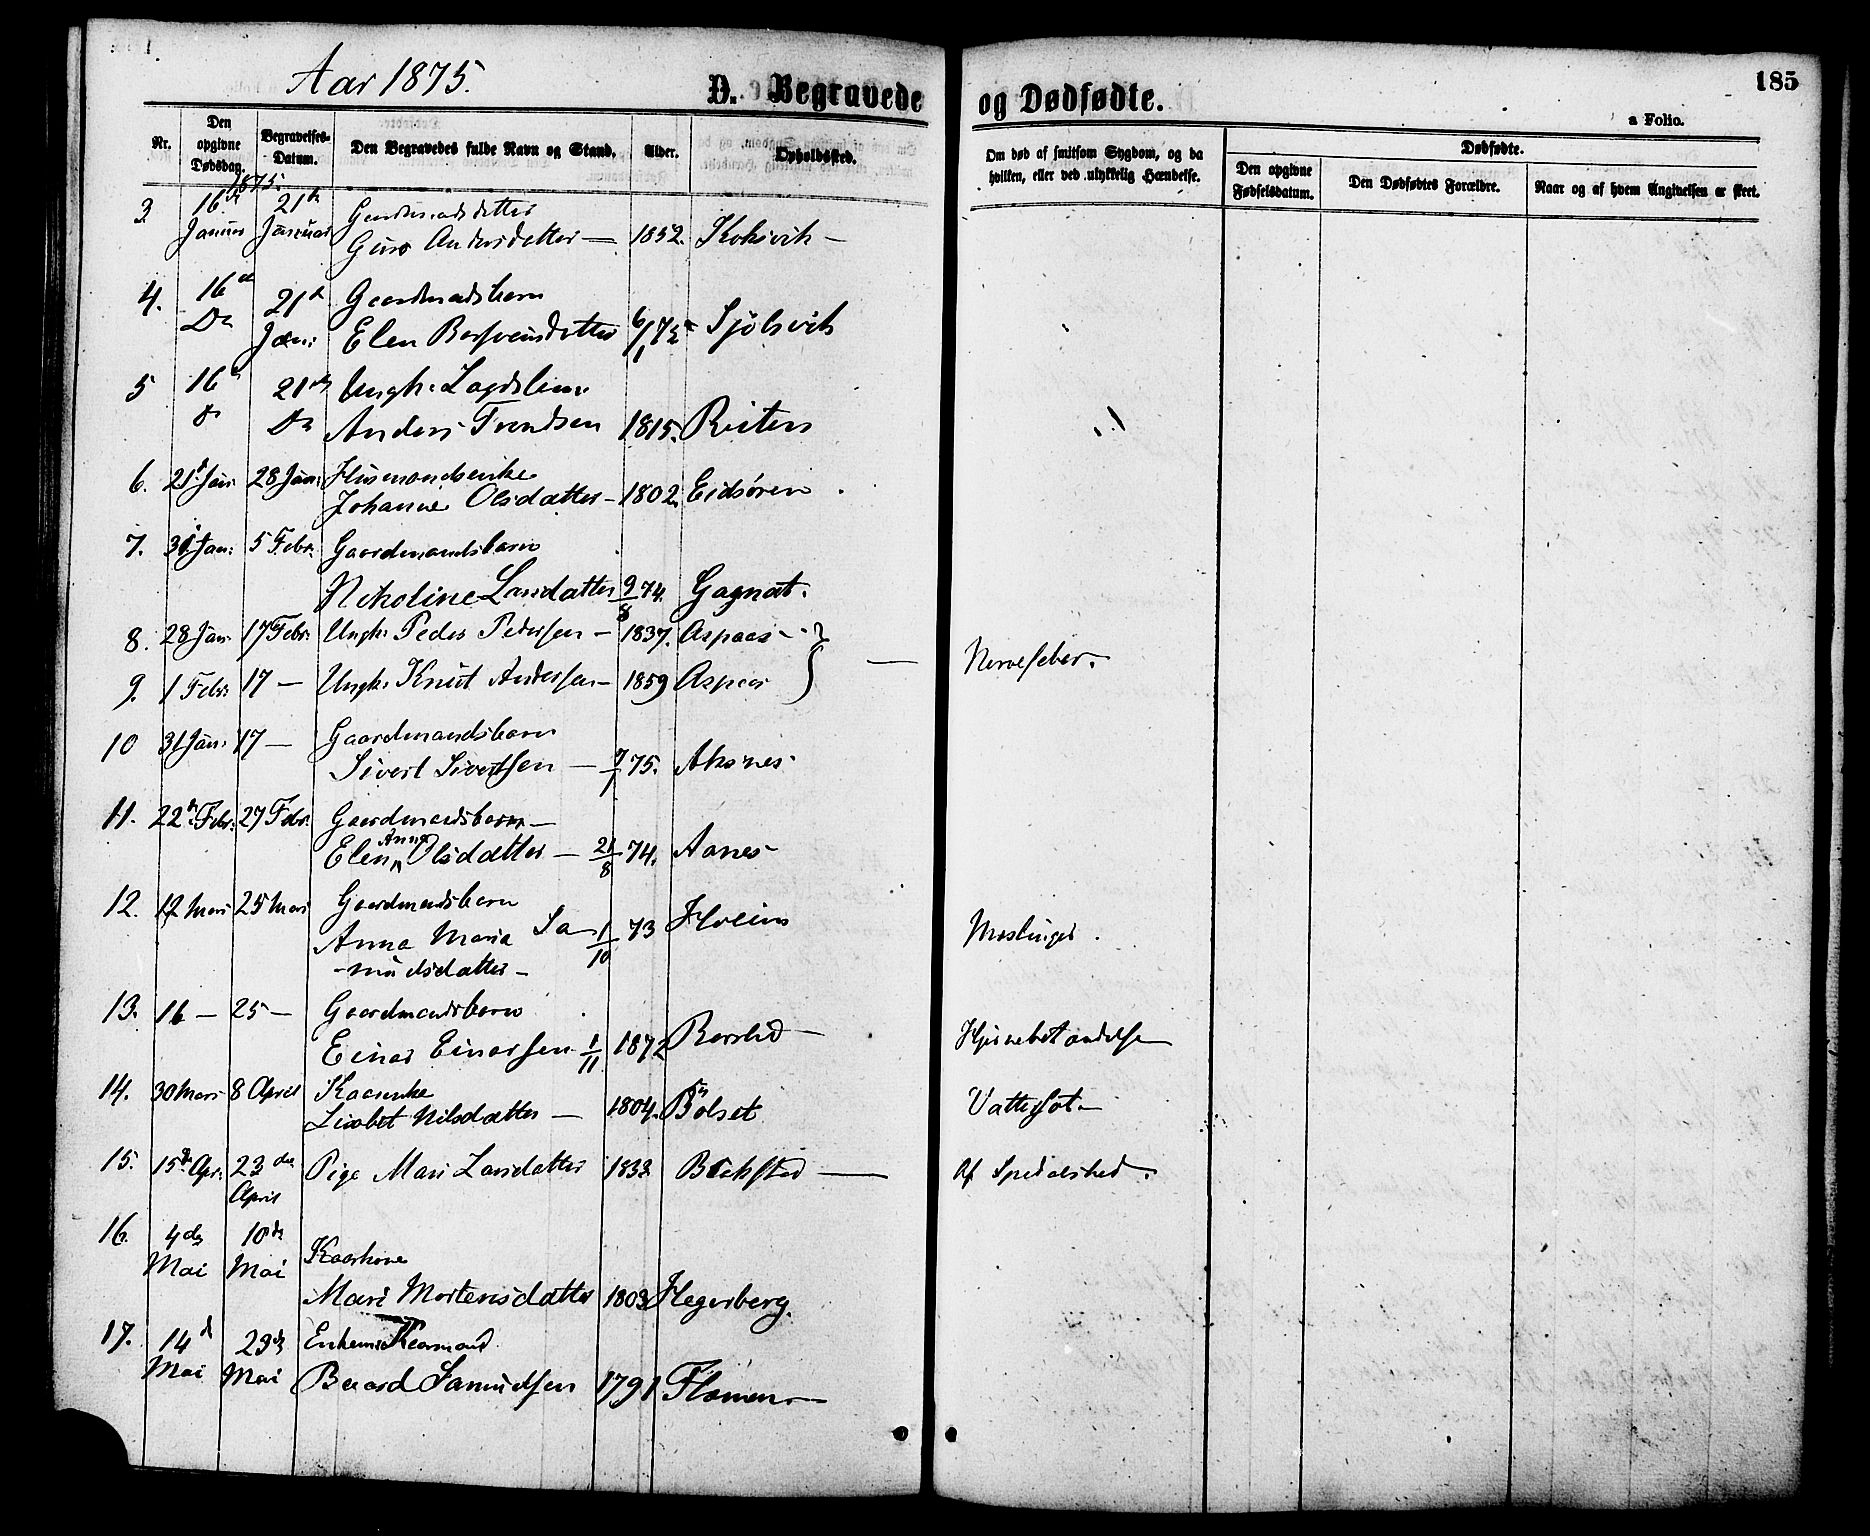 Aar 1875.
D. Begravede og Dødfødte.
185
a Folio.
Nr.
Den opgivne Dødsdag.
Begravelses-Datum.
Den Begravedes fulde Navn og Stand.
Alder.
Opholdssted.
Om død af smitsom Sygdom, og da hvilken, eller ved ulykkelig Hændelse.
Dødfødte.
Den opgivne Fødselsdatum.
Den Dødfødtes Forældre.
Naar og af hvem Angivelsen er skeet.
1875.
3 16de 21de Gaardmandsdatter
Januar Januar Guro Andersdatter — 1852. Koksvik —
4. 16de 21d Gaardmandsbarn
Do Jan: Elen 6/1 75 Sjølsvik
5 16 21de Ungk. Lægdslem
Do Do Anders Trondsen 1815. Reiten
6. 21d Jan: 28 Jan: Husmandsenke
Johanne Olsdatter — 1802. Eidsøren
7. 31 Jan: 5 Febr: Gaardmandsbarn
Nekoline Larsdatter 9/8 74. Gagnat.
8. 28 Jan. 17 Febr. Ungk: Peder Pedersen — 1837. Aspaas
Nervefeber.
9. 1 Febr: 17 — Ungk: Knut Andersen — 1859 Aspaas
10 31 Jan: 17 — Gaardmandsbarn
Sivert Sivertsen — 7/1 75. Aksnes
11. 22de Febr: 27 Febr. Gaardmandsbarn —
Elen Anna Olsdatter — 21/8 74. Aanes
12. 12 Mars 25 Mars Gaardmandsbarn
Anna Maria Sa 1/10 73 Hoeim Meslinger.
-mudsdatter —
13. 16 — 25 — Gaardmandsbarn
Einar Einarsen 1/11 1872 Hjernebetændelse
14. 30 Mars 8 April Kaarenke
Lisabet Nilsdatter — 1804. Bølset Vattersot —
15. 15de Apr: 23de Pige Mari Larsdatter Bækstad — Af Spedalshed.
April
16. 4de 10de
Mai Mai Kaarkone
Mari Mortensdatter 1803 Hegerberg.
17. 14d 23de Enkemd Kaarmand
Mai Mai Baard Samudsen 1791 Flemen —